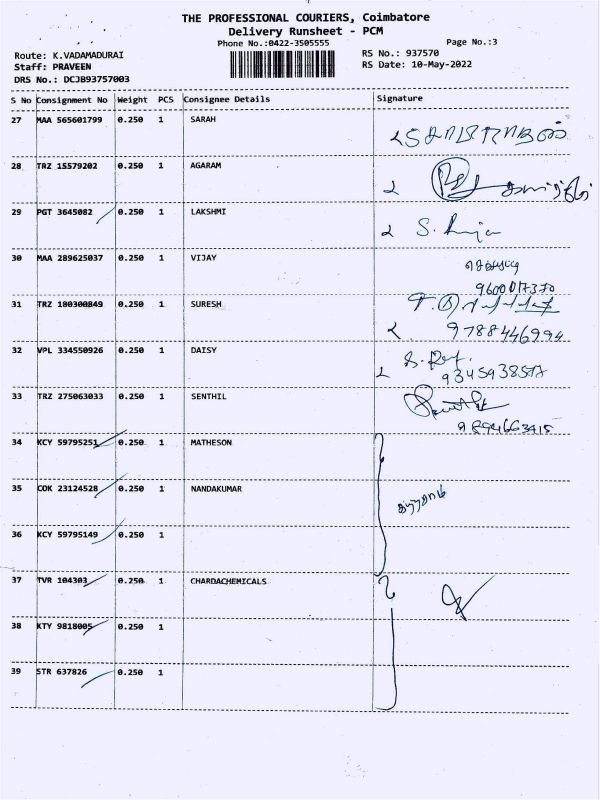 THE PROFESSIONAL COURIERS, Coimbatore
Delivery Runsheet - PCM
Phone No.:0422-3505555
Page No.:3
Route: K.VADAMADURAI
RS No.: 937570
Staff: PRAVEEN
RS Date: 10-May-2022
DRS No.: DCJB93757003
S No Consignment No Weight PCS Consignee Details Signature
27 MAA 565601799 0.250 1 SARAH
28 TRZ 15579202 0.250 1 AGARAM
29 PGT 3645082 0.250 1 LAKSHMI
30 MAA 289625037 0.250 1 VIJAY
31 TRZ 180300849 0.250 1 SURESH
9788446994
32 VPL 334550926 0.250 1 DAISY
33 TRZ 275063033 0.250 1 SENTHIL
9894663415
34 KCY 59795251 0.250 1 MATHESON
35 COK 23124528 0.250 1 NANDAKUMAR
36 KCY 59795149 0.250 1
37 TVR 104303 0.250 1 CHARDACHEMICALS
38 KTY 9818005 0.250 1
39 STR 637826 0.250 1